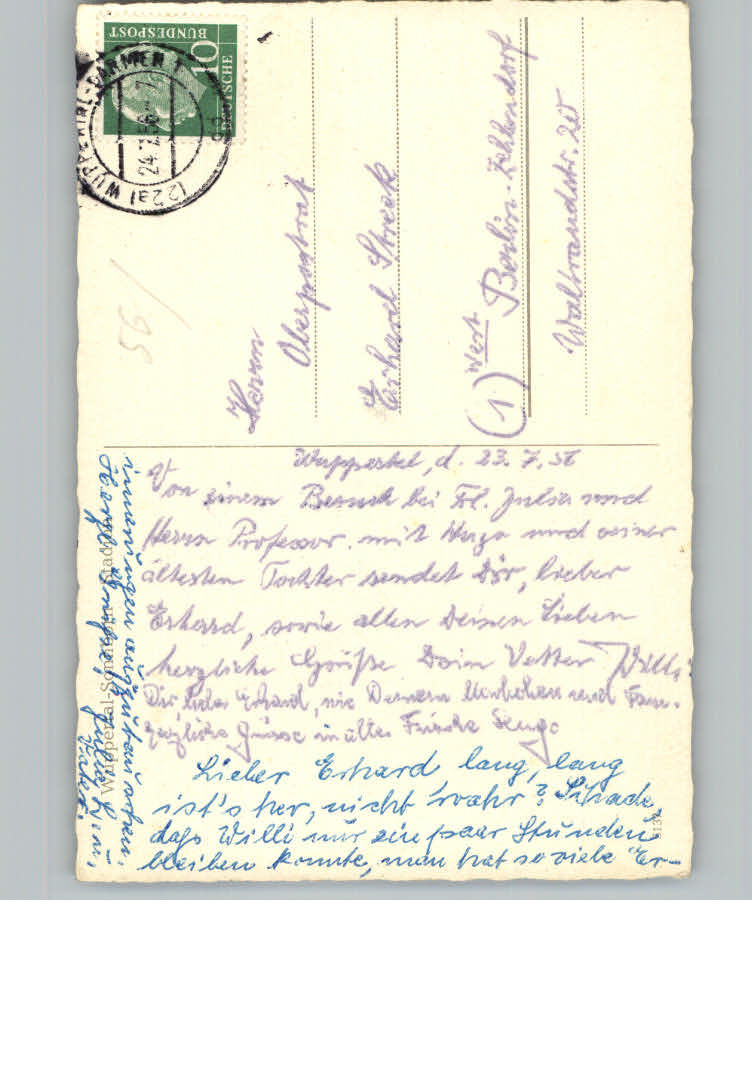 DEUTSCHE
BUNDESPOST
10
(22a) WUPPERTAL-BARMEN 1
24.7.56
56/
Herrn
Oberpostrat
Erhard Streck
(1) West Berlin-Zehlendorf
Waltraudstr. 20
Wuppertal, d. 23.7.56
Von einem Besuch bei Frl. Julia und
Herrn Professor. mit Hugo und seiner
ältesten Tochter sendet Dir, lieber
Erhard, sowie allen Deinen Lieben
herzliche Grüße Dein Vetter Willi
Dir, liebes Erhard, wie Deinem und Fam.
herzliche Grüsse in alter Frische Hugo
Lieber Erhard, lang, lang
ist's her, nicht wahr? Schade
daß Willi nur ein paar Stunden
bleiben konnte, man hat so viele Er-
innerungen auszutauschen.
Herzl. Grüße
Wuppertal-Sonnborn Stadion